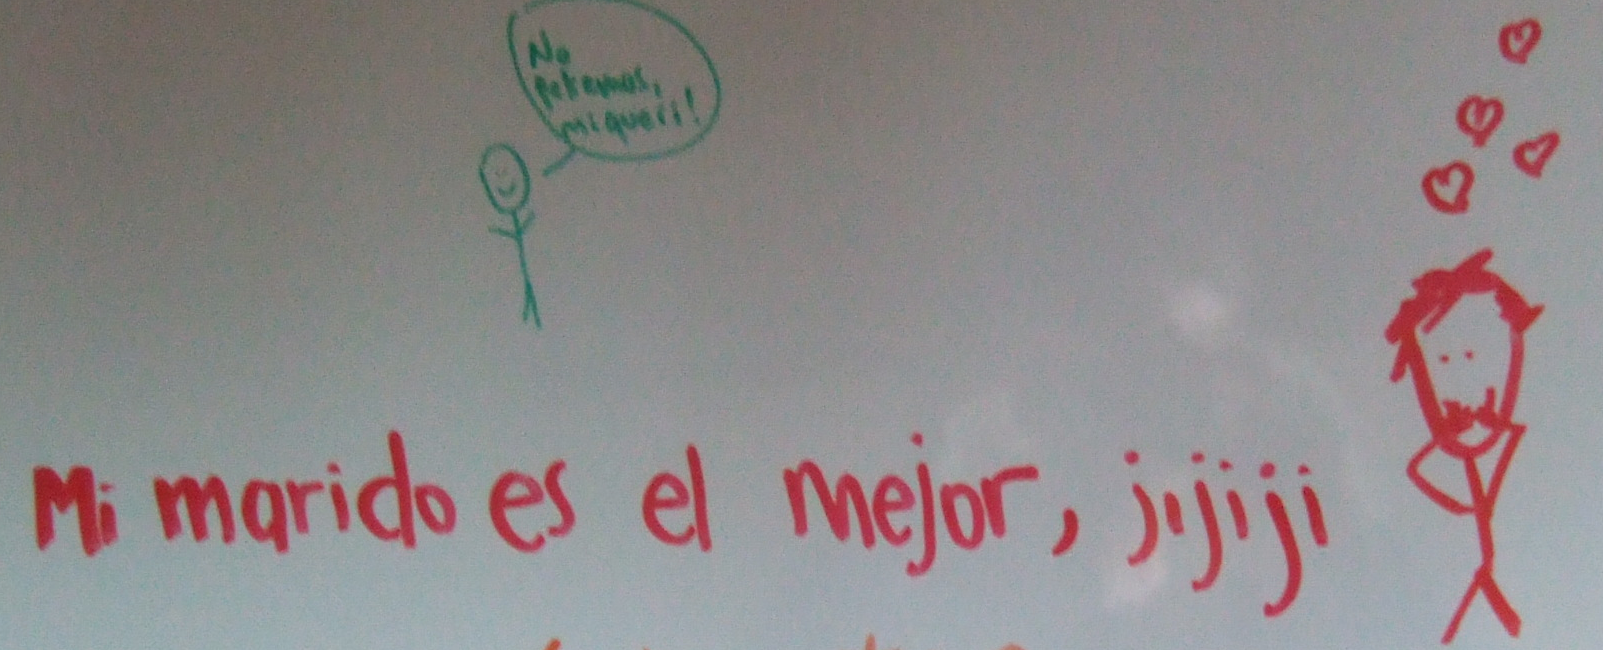 No
petemos,
miqueri!
Mi marido es el mejor, jijiji